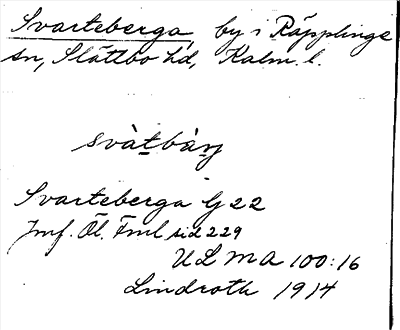 Svarteberga, by i Räpplinge
sn, Slättbo hd, Kalm. l.
svàt̠bàn̠
Svarteberga G 22
Jmf. Öl. Fml sid 229
ULMA 100:16
Lindroth 1914